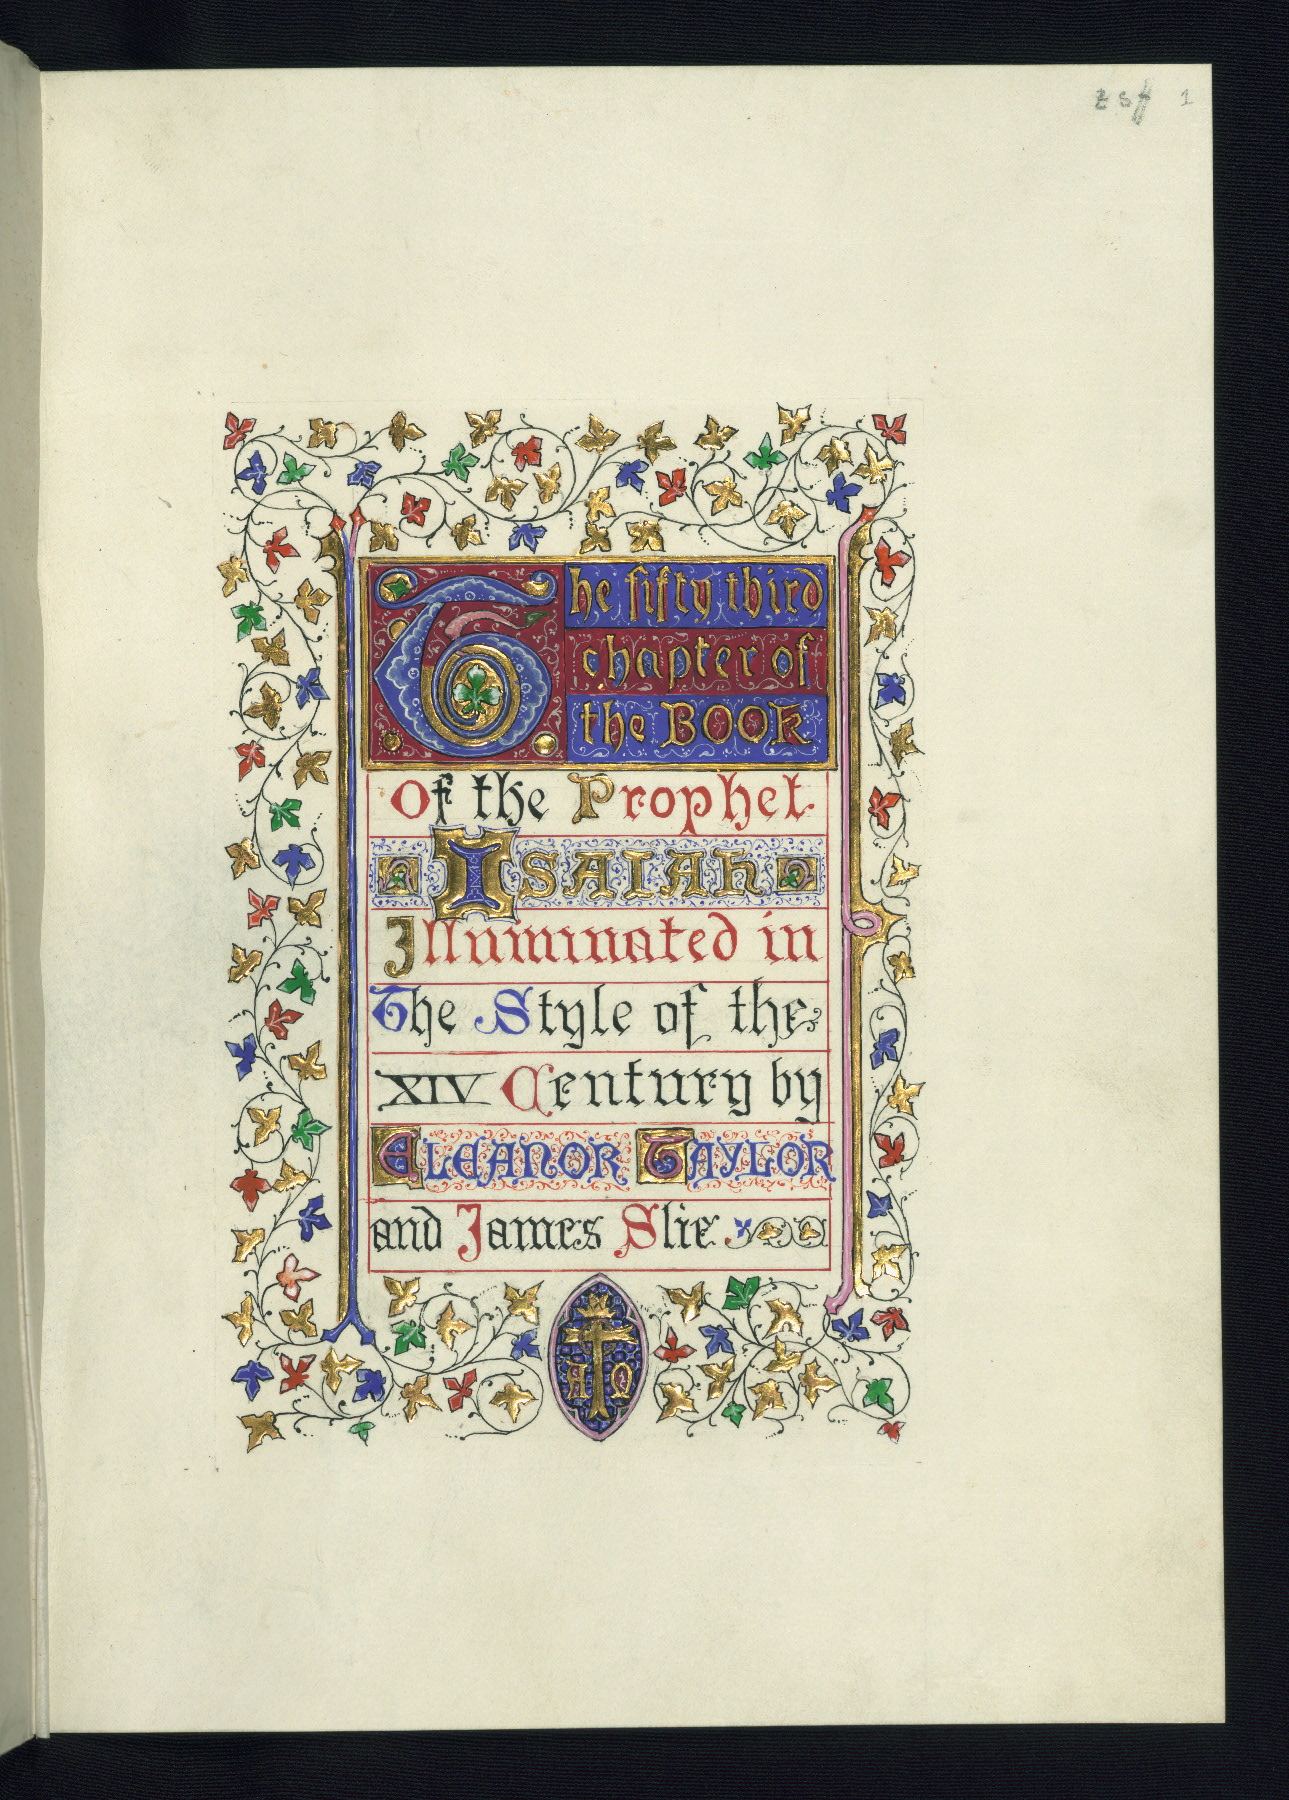 1
The fifty third
chapter of
the BOOK
Of the Prophet
ISAIAH
Illuminated in
The Style of the
XIV Century by
ELEANOR TAYLOR
and James Slie
A Ω